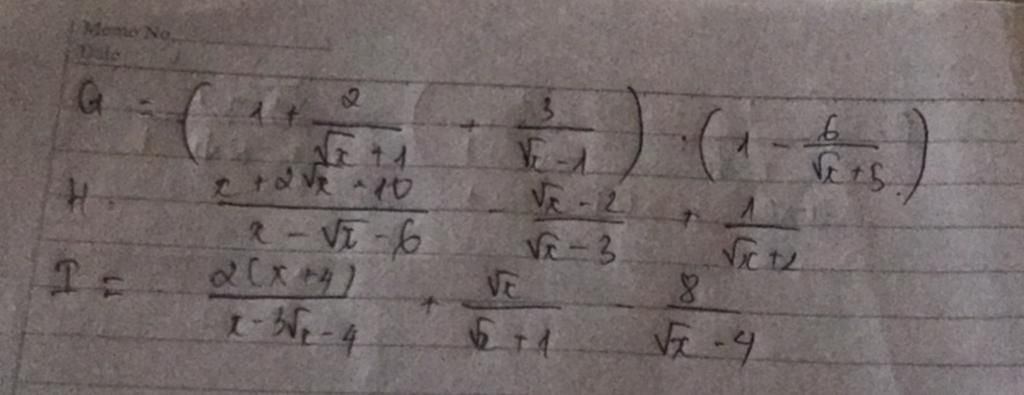 Memo No.
Date
G = ( 1 + 2/(√x + 1) + 3/(√x - 1) ) · ( 1 - 6/(√x + 5) )
H. (x + 2√x - 10)/(x - √x - 6) - (√x - 2)/(√x - 3) + 1/(√x + 2)
I = 2(x + 4)/(x - 3√x - 4) + √x/(√x + 1) - 8/(√x - 4)